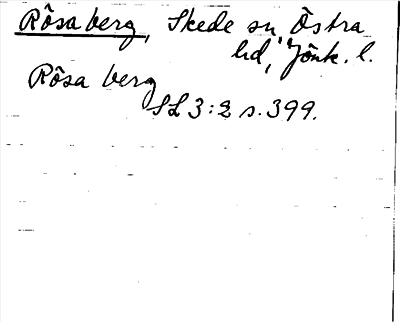 Rösa berg, Skede sn, Östra
hd, Jönk. l.
Rösa berg
SL 3:2 s. 399.